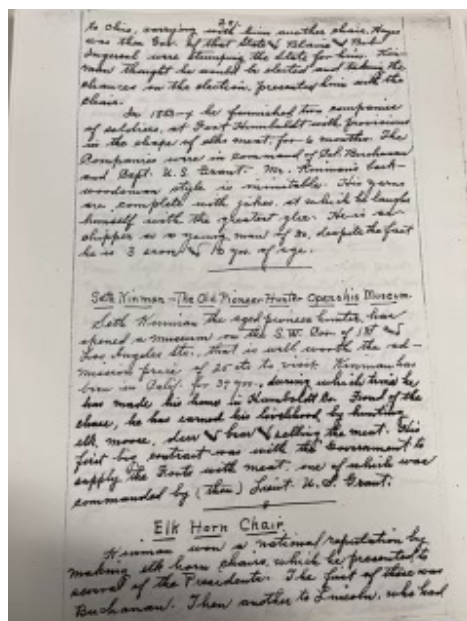 to Ohio, carrying with him another chair. Hayes
was then Gov. of that State & Blaine & Bob
Ingersol were stumping the State for him. Kin-
man thought he would be elected and taking the
chances on the election, presented him with the
chair.
In 1853-4 he furnished two companies
of soldiers, at Fort Humboldt with provisions
in the shape of elks meat, for 6 months. The
Companies were in command of Col. Buchanan
and Capt. U.S. Grant. Mr. Kinman's back-
woodsman style is inimitable. His yarns
are complete with jokes, at which he laughs
himself with the greatest glee. He is as
chipper as a young man of 20, despite the fact
he is 3 score & 10 yrs. of age.
Seth Kinman - The Old Pioneer Hunter Opens his Museum
Seth Kinman the aged pioneer hunter, has
opened a museum on the S.W. Cor. of 1st and
Los Angeles Sts. that is well worth the ad-
mission price of 25 cts to visit. Kinman has
been in Calif. for 37 yrs., during which time he
has made his home in Humboldt Co. Fond of the
chase, he has earned his livelihood by hunting
elk, moose, deer & bear & selling the meat. His
first big contract was with the Government to
supply the Forts with meat, one of which was
commanded by (then) Lieut. U.S. Grant.
Elk Horn Chair
Kinman won a national reputation by
making elk horn chairs, which he presented to
several of the Presidents. The first of these was
Buchanan. Then another to Lincoln, who had